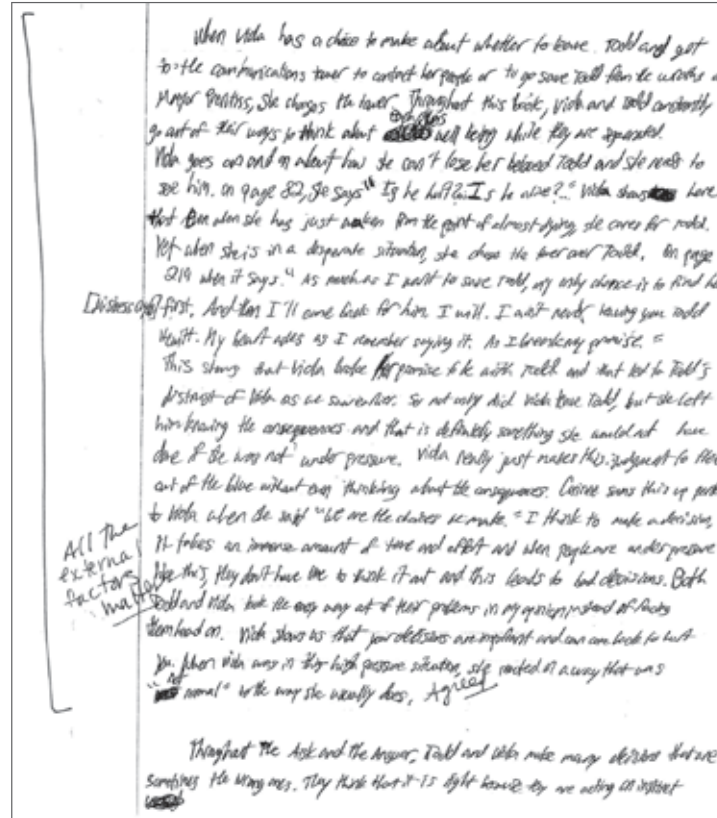 When Viola has a choice to make about whether to leave Todd and get
to the communications tower to contact her people or to go save Todd from the wrothe of
Mayor Prentiss, she choses the tower. Throughout this book, Viola and Todd constantly
go out of their ways to think about well being while they are separated.
Viola goes on and on about how she can't lose her beloved Todd and she needs to
see him. on page 82, she says "Is he hurt? Is he alive?..." Viola shows here
that even when she has just woken from the point of almost dying, she cares for Todd.
Yet when she is in a desperate situation, she chose the tower over Todd. On page
219 when it says. "As much as I want to save Todd, my only chance is to find her
[Mistress Coyle] first. And then I'll come back for him. I will. I ain't never leaving you Todd
Hewitt. My heart aches as I remember saying it. As I break my promise."
This shows that Viola broke her promise to be with Todd and that led to Todd's
distrust of Viola as we saw earlier. So not only did Viola leave Todd, but she left
him knowing the consequences and that is definitely something she would not have
done if she was not under pressure. Viola really just makes this judgment to flee
out of the blue without even thinking about the consequences. Corinne sums this up
to Viola when she said "We are the choices we make." I think to make a decision,
it takes an immense amount of time and effort and when people are under pressure
like this, they don't have time to think it out and this leads to bad decisions. Both
Todd and Viola took the easy way out of their problems in my opinion instead of facing
them head on. Viola shows us that your decisions are important and can come back to hurt
you. When Viola was in this high pressure situation, she reacted in a way that was
"not normal" to the way she usually does. Agreed
All the
external
factors
matter
Throughout The Ask and the Answer, Todd and Viola make many decisions that are
sometimes the wrong ones. They think that it is right because they are acting on instinct